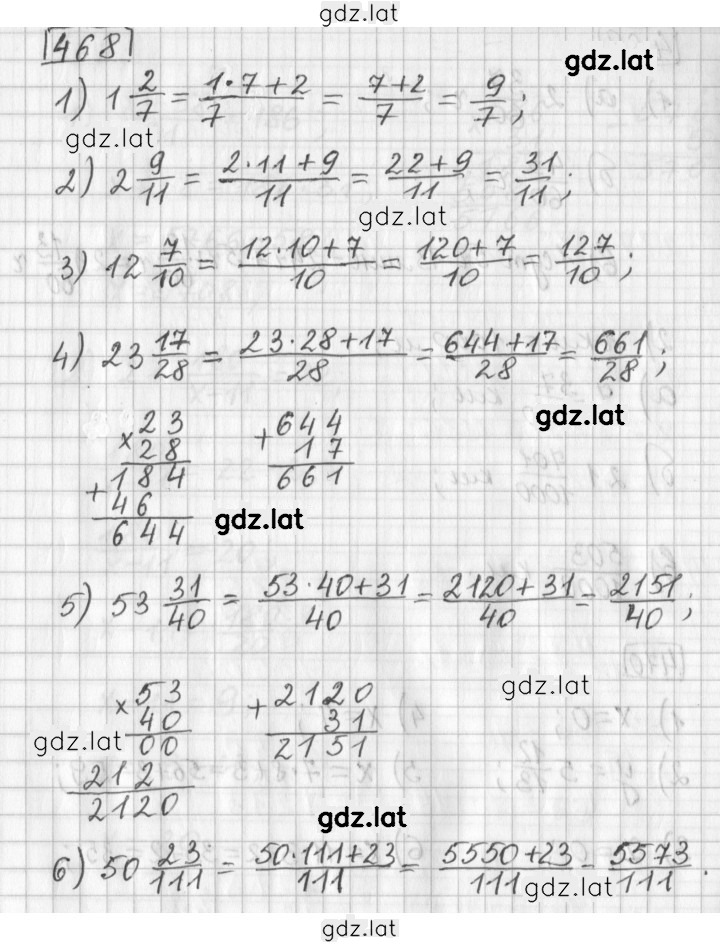 gdz.lat
468
gdz.lat
1) 1 2/7 = (1·7+2)/7 = (7+2)/7 = 9/7;
gdz.lat
2) 2 9/11 = (2·11+9)/11 = (22+9)/11 = 31/11;
gdz.lat
3) 12 7/10 = (12·10+7)/10 = (120+7)/10 = 127/10;
4) 23 17/28 = (23·28+17)/28 = (644+17)/28 = 661/28;
gdz.lat
× 23 + 644
28 17
184 661
+ 46
644 gdz.lat
5) 53 31/40 = (53·40+31)/40 = (2120+31)/40 = 2151/40;
× 53 + 2120 gdz.lat
40 31
gdz.lat 00 2151
212
2120
gdz.lat
6) 50 23/111 = (50·111+23)/111 = (5550+23)/111 = 5573/111.
gdz.lat
gdz.lat